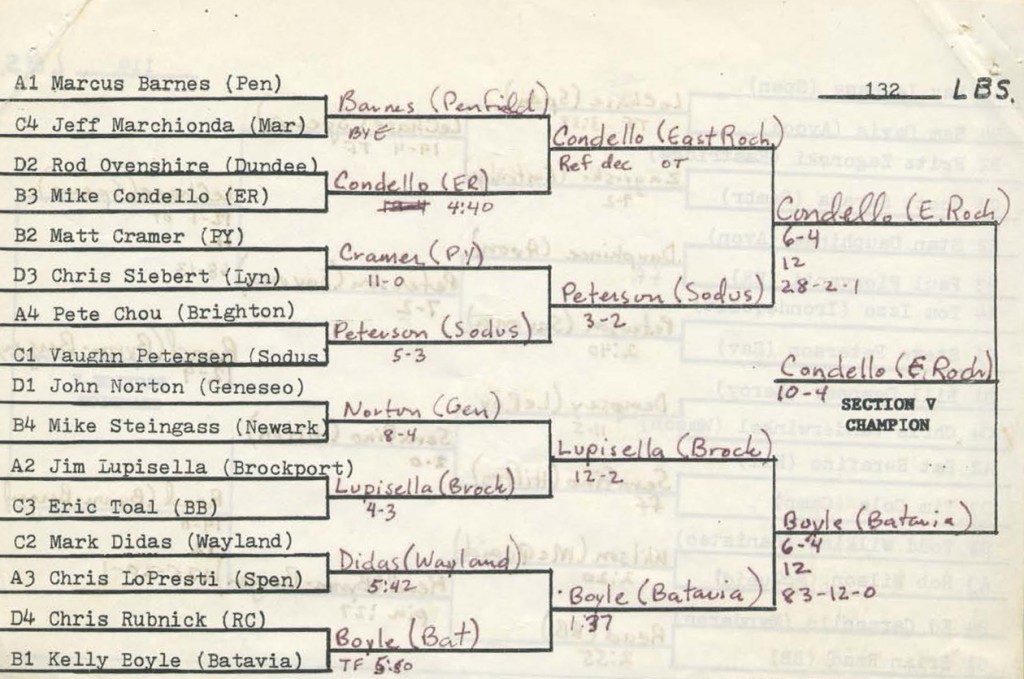 132 LBS.
A1 Marcus Barnes (Pen)
Barnes (Penfield)
C4 Jeff Marchionda (Mar)
BYE
Condello (East Roch)
D2 Rod Ovenshire (Dundee)
Ref dec OT
Condello (ER)
B3 Mike Condello (ER)
4:40
Condello (E. Roch)
B2 Matt Cramer (PY)
6-4
Cramer (PY)
12
D3 Chris Siebert (Lyn)
11-0
28-2-1
Peterson (Sodus)
A4 Pete Chou (Brighton)
3-2
Peterson (Sodus)
C1 Vaughn Petersen (Sodus)
5-3
Condello (E. Roch)
D1 John Norton (Geneseo)
10-4
SECTION V
CHAMPION
Norton (Gen)
B4 Mike Steingass (Newark)
8-4
Lupisella (Brock)
A2 Jim Lupisella (Brockport)
12-2
Lupisella (Brock)
C3 Eric Toal (BB)
4-3
Boyle (Batavia)
C2 Mark Didas (Wayland)
6-4
Didas (Wayland)
12
A3 Chris LoPresti (Spen)
5:42
83-12-0
Boyle (Batavia)
D4 Chris Rubnick (RC)
1:37
Boyle (Bat)
B1 Kelly Boyle (Batavia)
TF